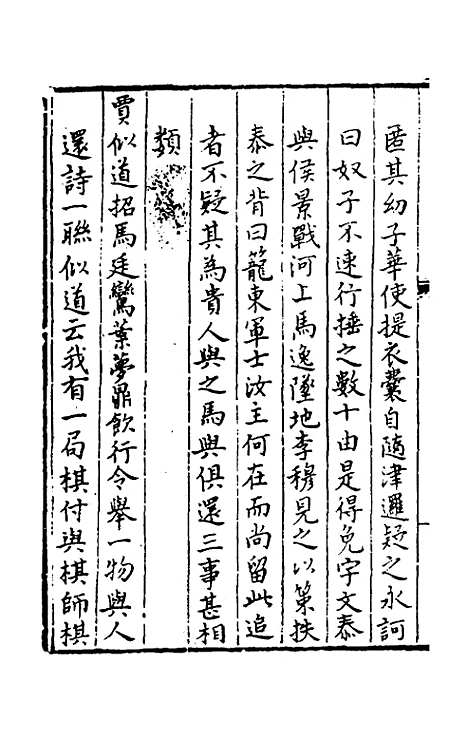 匿其幼子華使提衣囊自隨津邏疑之永訶
曰奴子不速行捶之數十由是得免宇文泰
與侯景戰河上馬逸墜地李穆見之以策抶
泰之背曰籠東軍士汝主何在而尚留此追
者不疑其為貴人與之馬與俱還三事甚相
類
賈似道招馬廷鸞葉夢鼎飲行令舉一物與人
還詩一聯似道云我有一局棋付與棋師棋